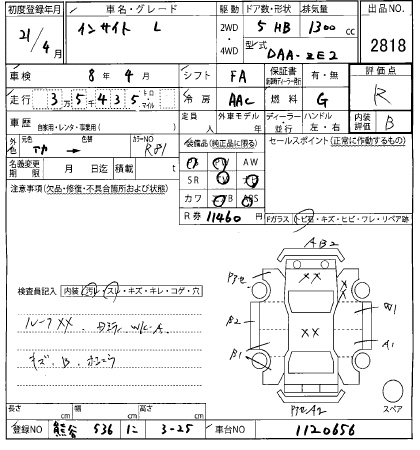 初度登録年月 車名・グレード 駆動 ドア数・形状 排気量 出品NO.
21/4月 インサイト L 2WD・4WD 5 HB 1300 cc 2818
型式 DAA-ZE2
車検 8年 4月 シフト FA 保証書 有・無 評価点
走行 3万5千435 キロ・マイル 冷房 AAC 燃料 G R
車歴 自家用・レンタ・事業用( ) 定員 人 外車モデル 年 ディーラー・並行 ハンドル 左・右 内装評価 B
外色 元色 アカ → 色替 カラーNO R81 装備品(純正品に限る) セールスポイント(正常に作動するもの)
名義変更期限 月 日迄 積載 t AW
注意事項(欠品・修復・不具合箇所および状態) SR
カワ ABS
R券 11460 円 Fガラス トビ石・キズ・ヒビ・ワレ・リペア跡
検査員記入 内装 汚レ・スレ・キズ・キレ・コゲ・穴
ルーフXX W/C-A
キズ B
AB2
XX
アセ
X
X
B2
XX
W1
A1
B1
アセA2
スペア
長さ cm 幅 cm 高さ cm
登録NO 熊谷 536 に 3-25 車台NO 1120656